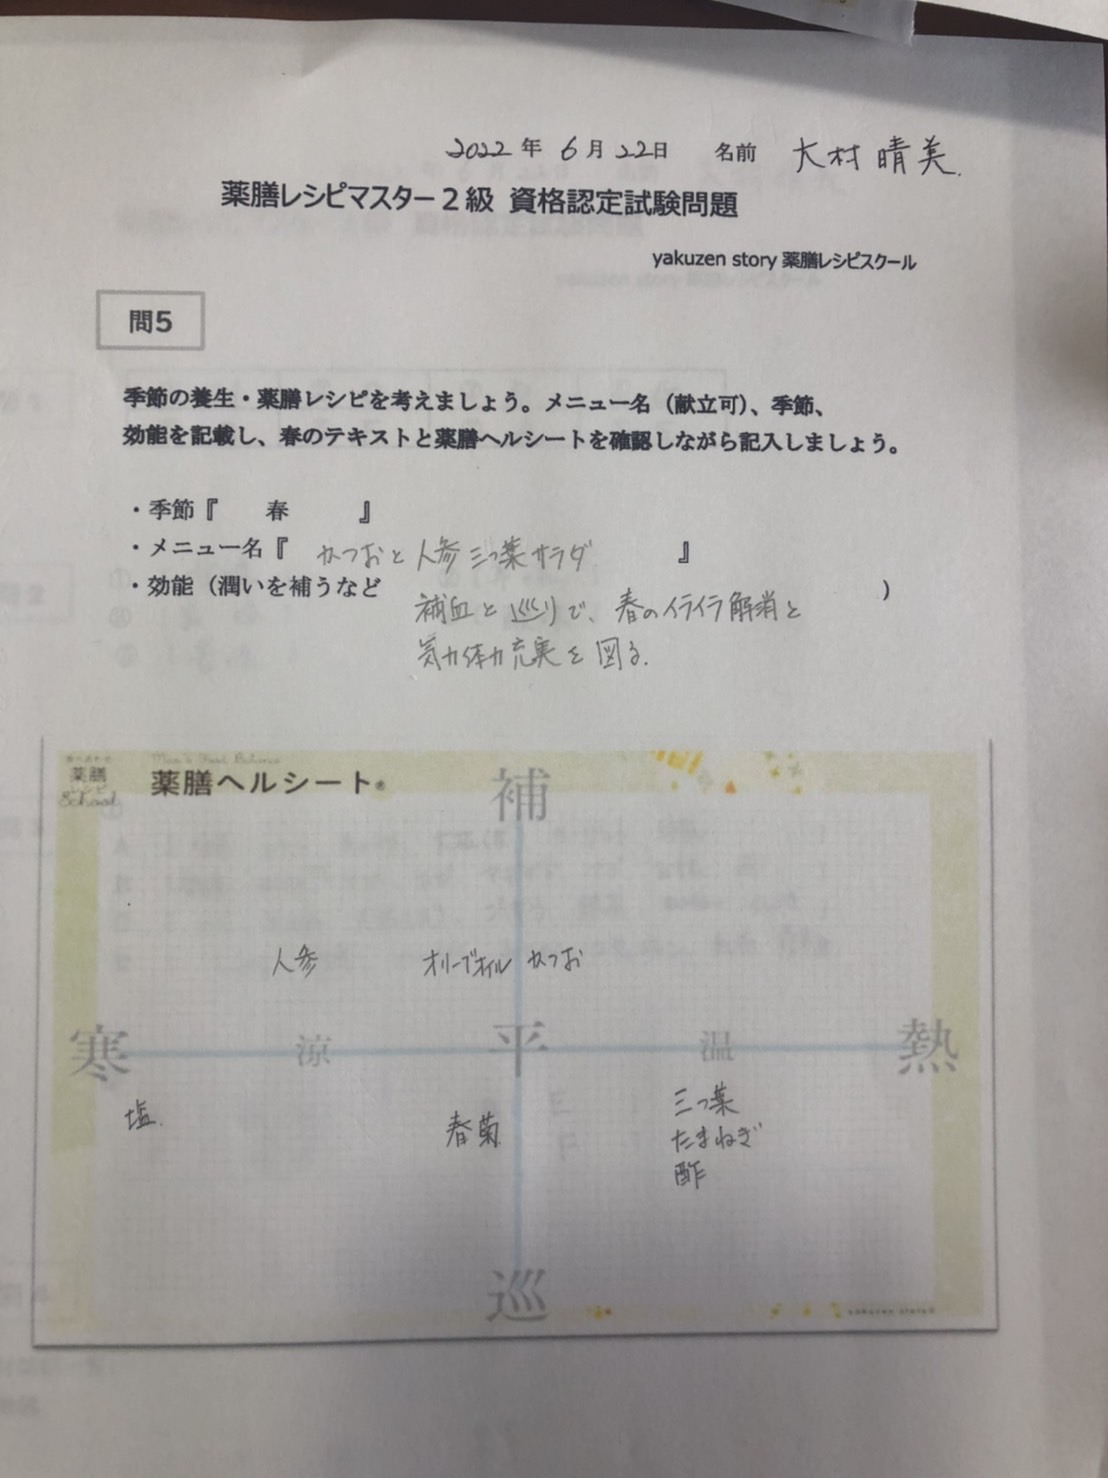 2022年 6月 22日 名前 大村晴美
薬膳レシピマスター2級 資格認定試験問題
yakuzen story 薬膳レシピスクール
問5
季節の養生・薬膳レシピを考えましょう。メニュー名（献立可）、季節、
効能を記載し、春のテキストと薬膳ヘルシートを確認しながら記入しましょう。
・季節『 春 』
・メニュー名『 かつおと人参三つ葉サラダ 』
・効能（潤いを補うなど ）
補血と巡りで、春のイライラ解消と
気力体力充実を図る.
薬膳
School
薬膳ヘルシート®
補
人参 オリーブオイル かつお
寒 涼 平 温 熱
塩. 春菊 三つ葉
たまねぎ
酢
巡
yakuzen story